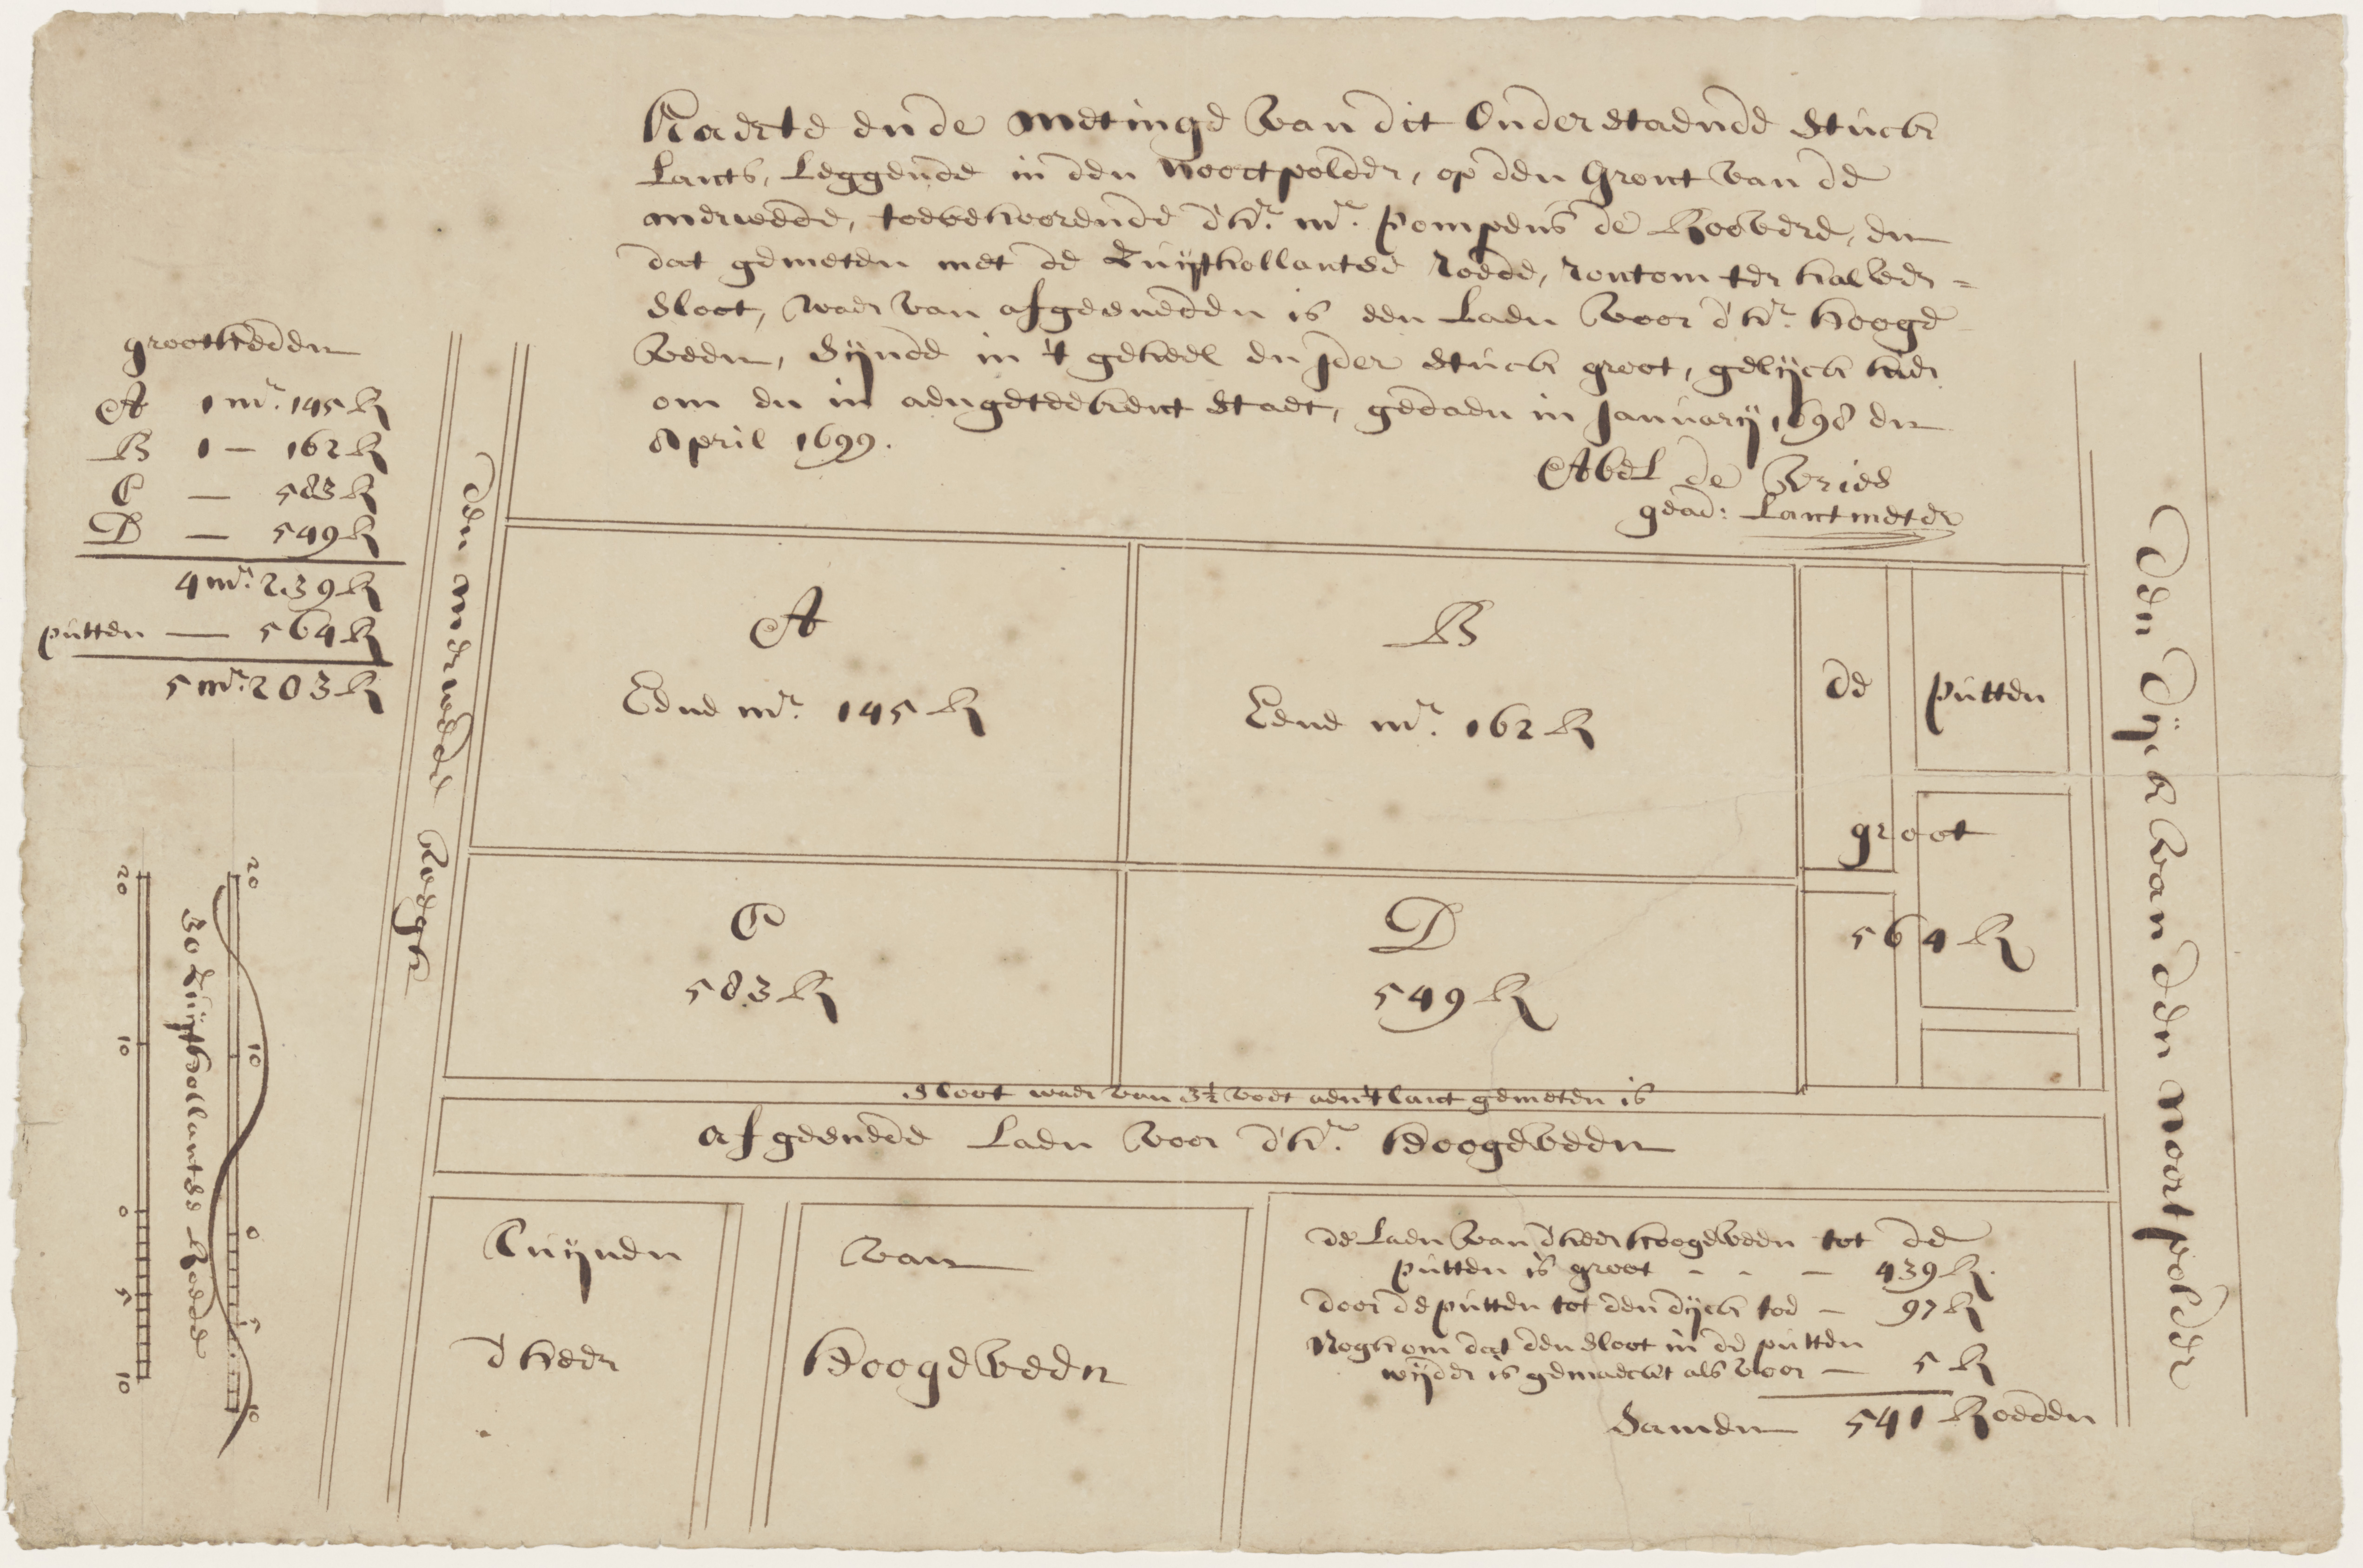 Kaerte ende metinge van dit onderstaende stuck
Lants, Leggende in den noortpolder, op den Gront van de
merwede, toebehoorende d'hr. mr. Pompeus de Roovere, en
dat gemeten met de Zuijthollantse roede, rontom ter halver=
sloot, waer van afgesneeden is een Laen voor d'hr. Hooge
veen, sijnde in 't geheel en jder stuck groot, gelijck hier
om en in aengeteekent staet, gedaen in January 1698 en
April 1699.
Abel de Vries
gead: Lantmeter
grootheeden
A 1 mr. 145 R
B 1 — 162 R
C — 583 R
D — 549 R
4 mr. 239 R
putten — 564 R
5 mr. 203 R
den merweede weegh
A
Eene mr. 145 R
B
Eene mr. 162 R
de putten
groot
564 R
C
583 R
D
549 R
Sloot waer van 3½ voet aen 't lant gemeten is
afgesnede Laen voor d'hr. Hoogeveen
Tuijnen van
d'heer Hoogeveen
de Laen van d'heer Hoogeveen tot de
putten is groot - - — 439 R.
door de putten tot den dijck toe — 97 R
Nogh om dat den sloot in de putten
wijder is gemaeckt als voor — 5 R
Samen 541 Roeden
Den Dijck van den noortpolder
20 10 0 5 10
30 Zuijthollantse Roede
20 10 0 5 10